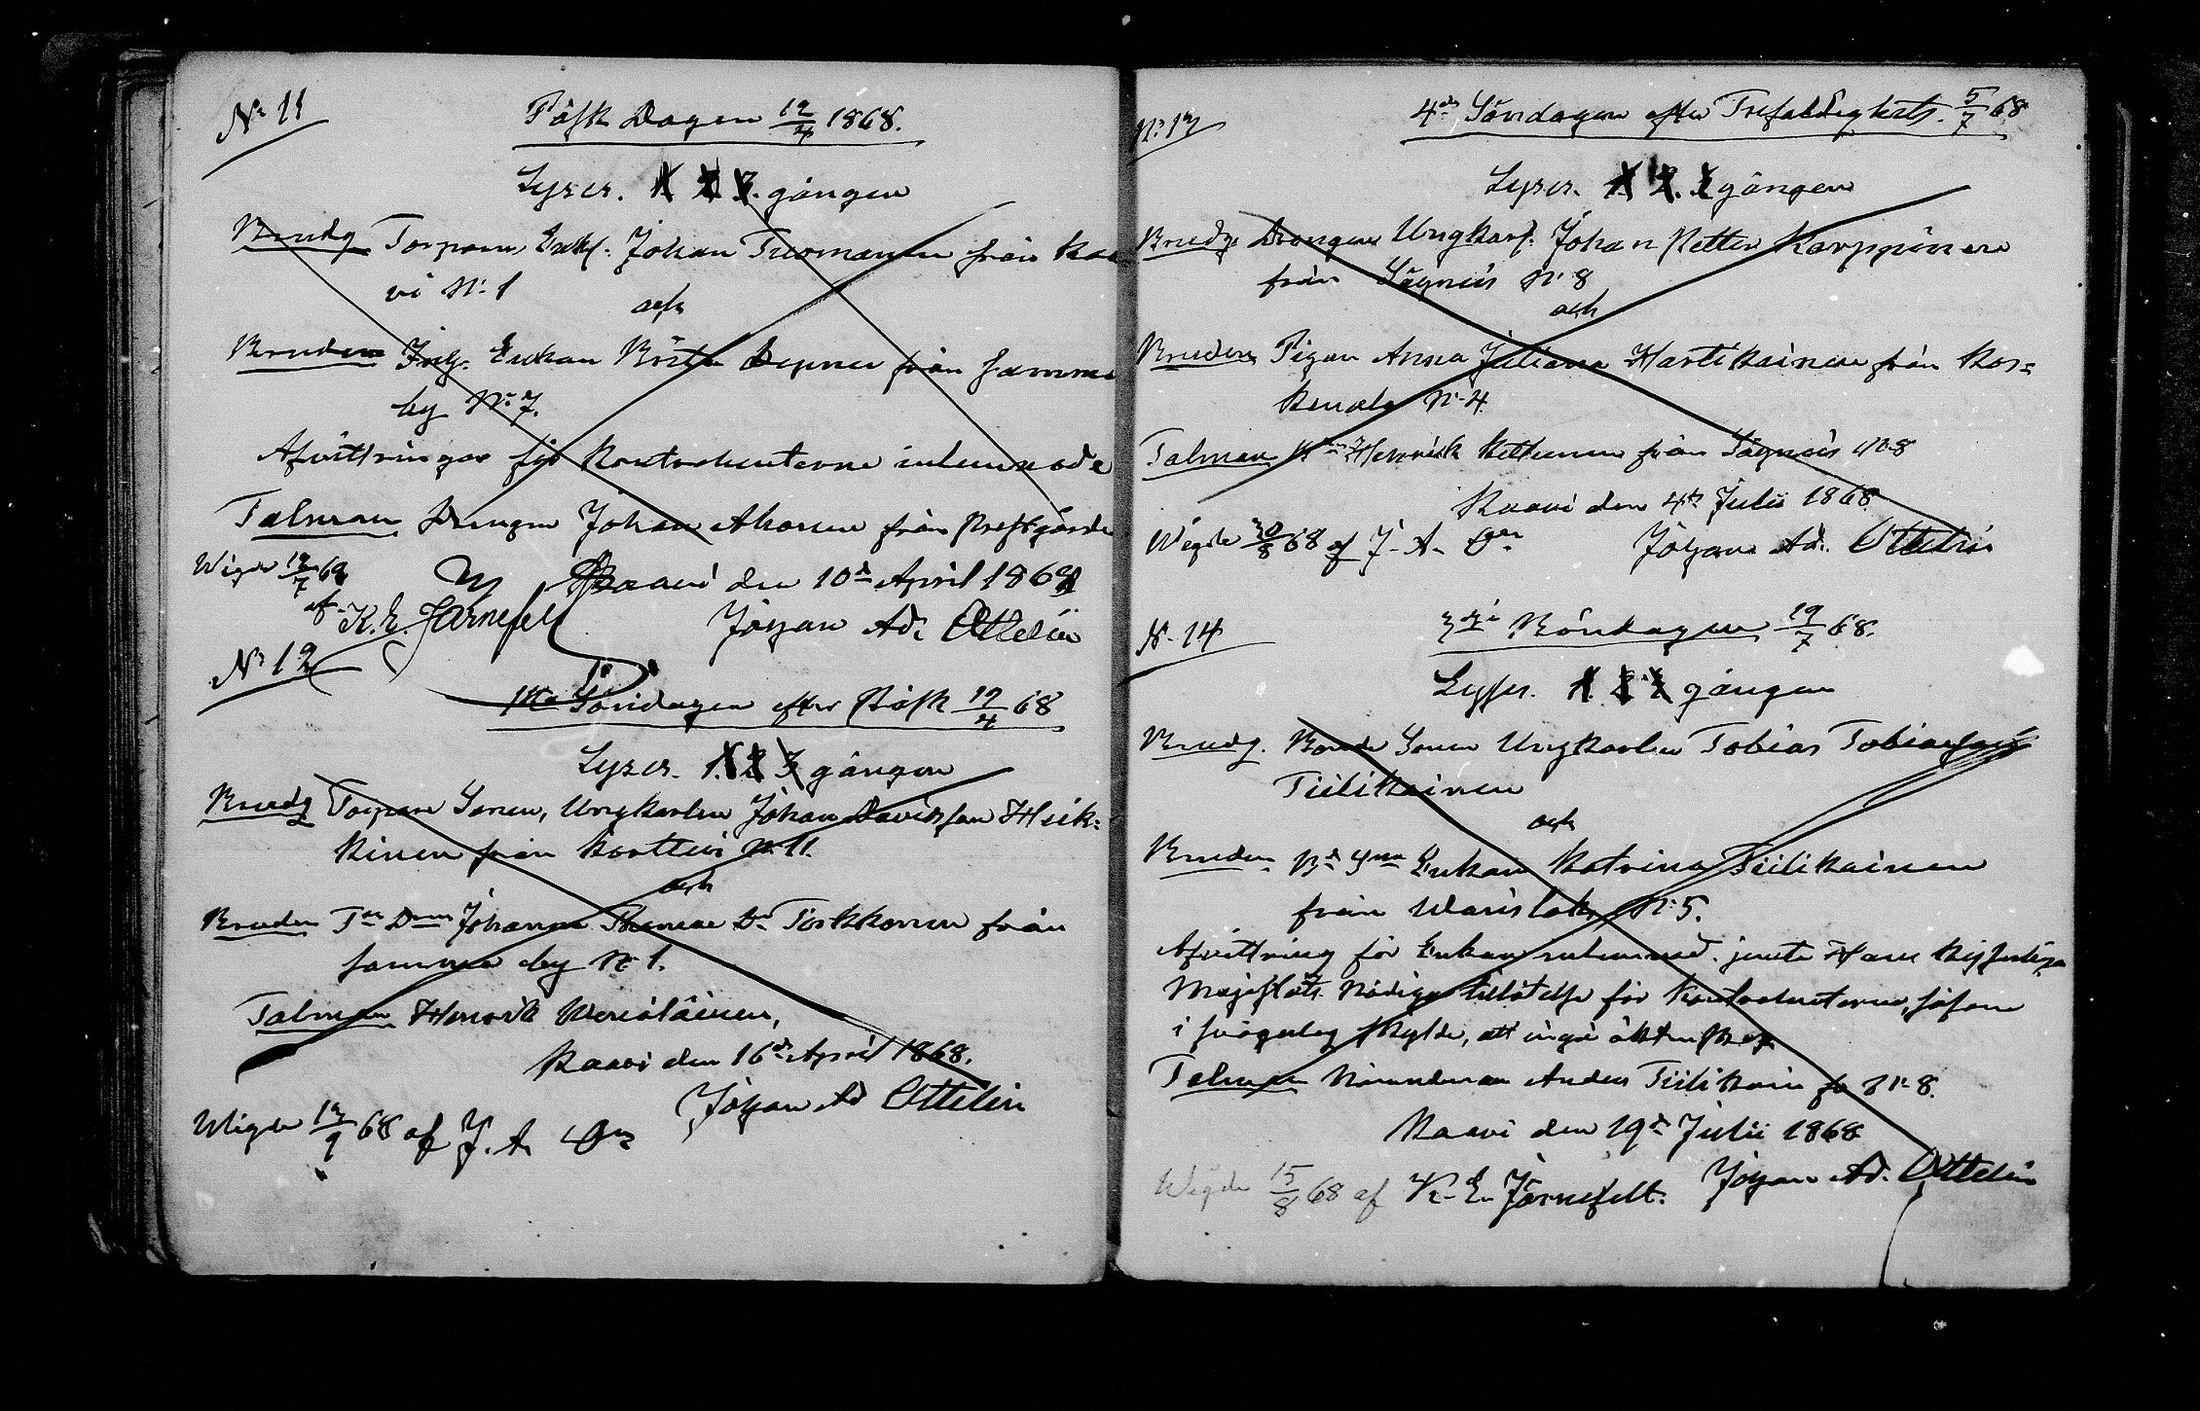 N: 11
Påsk Dagen 12/4 1868.
Lyses. 1 2 3. gången
Brudg Torparen Enkl. Johan Tuomainen från Kaa
vi N: 1
och
Bruden Inh. Enkan Brita Lepner från samma
by N: 7.
Afvittringar för Kontrahenterne inlemnade
Talman Drengen Johan Ahonen från Prestgården
Wigde 12/7 68
af K. E. Järnefelt
Kaavi den 10de April 1868
Johan Ad. Ottelin
N: 12
1sta Söndagen efter Påsk 19/4 68
Lyses. 1. 2 3 gången
Brudg Torpare Sonen, Ungkarlen Johan Davidsson Heik=
kinen från Kortteis N: 11.
och
Bruden Johanna från
samma by N: 1.
Talman Henrik
Kaavi den 16de April 1868.
Johan Ad Ottelin
Wigde 13/9 68 af J. A. On
N: 13
4de Söndagen efter Trefaldighets. 5/7 68
Lyses. 1. 2. 3 gången
Brudg. Drengen Ungkarl. Johan Petter Karppinen
från Sägneis N: 8
och
Bruden Pigan Anna Juliana Hartikainen från Kos=
kenala N: 4.
Talman Henrik Kettunen från Sägneis N: 8
Kaavi den 4de Julii 1868
Wigde 30/8 68 af J. A. On
Johan Ad. Ottelin
N: 14
3dje Böndagen 19/7 68.
Lyses. 1. 2 3 gången
Brudg. Bonde Sonen Ungkarlen Tobias Tobiasson
Tiilikainen
och
Bruden. Enkan Katrina Tiilikainen
från Warislahti N: 5.
Afvittring för Enkan inlemnad. jemte Hans Kejserliga
Majestäts Nådiga tillåtelse för Kontrahenterne, såsom
i svågerlag skylde, att ingå äktenskap
Talman Nämndeman Anders Tiilikain fr N: 8.
Kaavi den 19de Julii 1868
Wigde 15/8 68 af K. E. Järnefelt. Johan Ad. Ottelin